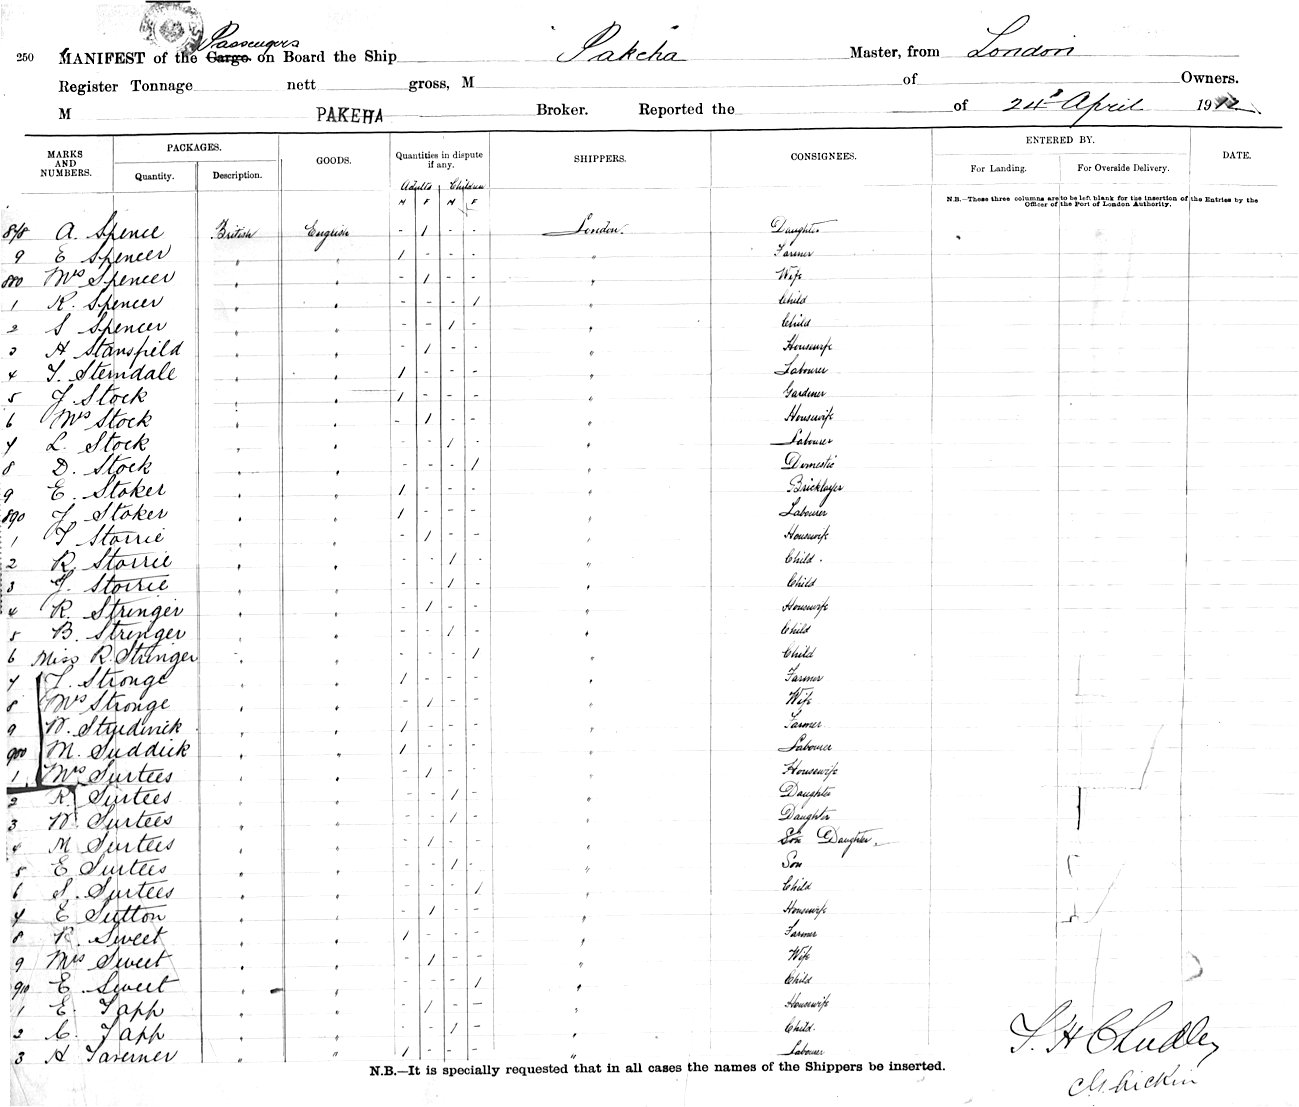 Passengers
250 MANIFEST of the Cargo on Board the Ship Pakeha Master, from London
Register Tonnage nett gross, M of Owners.
M PAKEHA Broker. Reported the of 24th April 1912
MARKS AND NUMBERS. PACKAGES. Quantity. Description. GOODS. Quantities in dispute if any. SHIPPERS. CONSIGNEES. ENTERED BY. For Landing. For Overside Delivery. DATE.
Adults Children
M F M F
N.B.—These three columns are to be left blank for the insertion of the Entries by the
Officer of the Port of London Authority.
878 A. Spence British English - 1 - - London. Daughter
9 E Spencer " " 1 - - - " Farmer
880 Mrs Spencer " " - 1 - - " Wife
1 R. Spencer " " - - - 1 " Child
2 S Spencer " " - - 1 - " Child
3 H Stansfield " " - 1 - - " Housewife
4 T. Sterndale " " 1 - - - " Labourer
5 J Stock " " 1 - - - " Gardener
6 Mrs Stock " " - 1 - - " Housewife
7 L. Stock " " - - 1 - " Labourer
8 D. Stock " " - - - 1 " Domestic
9 E. Stoker " " 1 - - - " Bricklayer
890 J Stoker " " 1 - - - " Labourer
1 T Storrie " " - 1 - - " Housewife
2 R. Storrie " " - - 1 - " Child.
3 J. Storrie " " - - 1 - " Child
4 R. Stringer " " - 1 - - " Housewife
5 B. Stringer " " - - 1 - " Child
6 Miss R. Stringer " " - - - 1 " Child
7 T. Stronge " " 1 - - - " Farmer
8 Mrs Stronge " " - 1 - - " Wife
9 W. Studwick " " 1 - - - " Farmer
900 M. Suddick " " 1 - - - " Labourer
1 Mrs Surtees " " - 1 - - " Housewife
2 R. Surtees " " - - 1 - " Daughter
3 W. Surtees " " - - 1 - " Daughter
4 M Surtees " " - 1 - - " Son Daughter.
5 E Surtees " " - - 1 - " Son
6 S. Surtees " " - - - 1 " Child
7 E Sutton " " - 1 - - " Housewife
8 R. Sweet " " 1 - - - " Farmer
9 Mrs Sweet " " - 1 - - " Wife
910 E. Sweet " " - - - 1 " Child
1 E. Tapp " " - 1 - - " Housewife
2 C. Tapp " " - - 1 - " Child.
3 H Taverner " " 1 - - - " Labourer
T. H Chudley
N.B.—It is specially requested that in all cases the names of the Shippers be inserted.